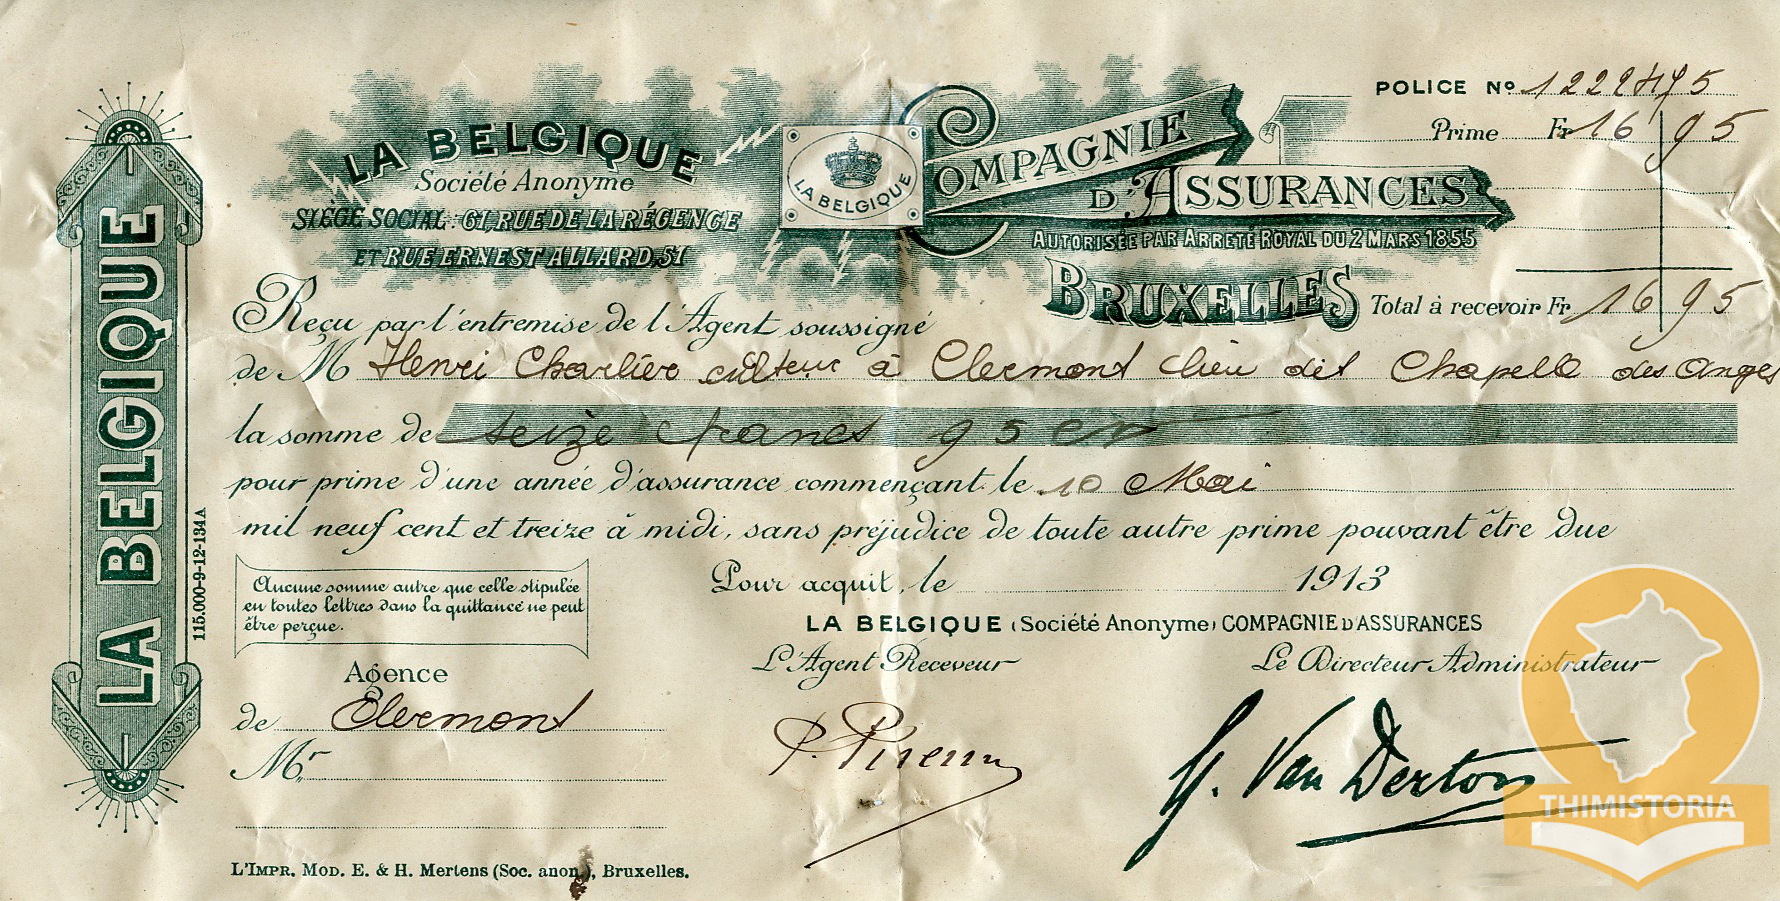 POLICE No 1222475
Prime Fr 16 95
LA BELGIQUE
Société Anonyme
SIÈGE SOCIAL: 61, RUE DE LA RÉGENCE
ET RUE ERNEST ALLARD, 51
LA BELGIQUE
COMPAGNIE
D'ASSURANCES
AUTORISÉE PAR ARRETÉ ROYAL DU 2 MARS 1855
BRUXELLES
Total à recevoir Fr 16 95
LA BELGIQUE
115.000-9-12-134 A
Reçu par l'entremise de l'Agent soussigné
de M Henri Charlier culteur à Clermont lieu dit Chapelle des Anges
la somme de seize francs 95 cs
pour prime d'une année d'assurance commençant le 10 Mai
mil neuf cent et treize à midi, sans préjudice de toute autre prime pouvant être due
Aucune somme autre que celle stipulée
en toutes lettres dans la quittance ne peut
être perçue.
Pour acquit, le 1913
LA BELGIQUE (Société Anonyme) COMPAGNIE D'ASSURANCES
L'Agent Receveur
Le Directeur Administrateur
Agence
de Clermont
Mr
P.
G. Van Derton
L'IMPR. MOD. E. & H. Mertens (Soc. anon.), Bruxelles.
THIMISTORIA